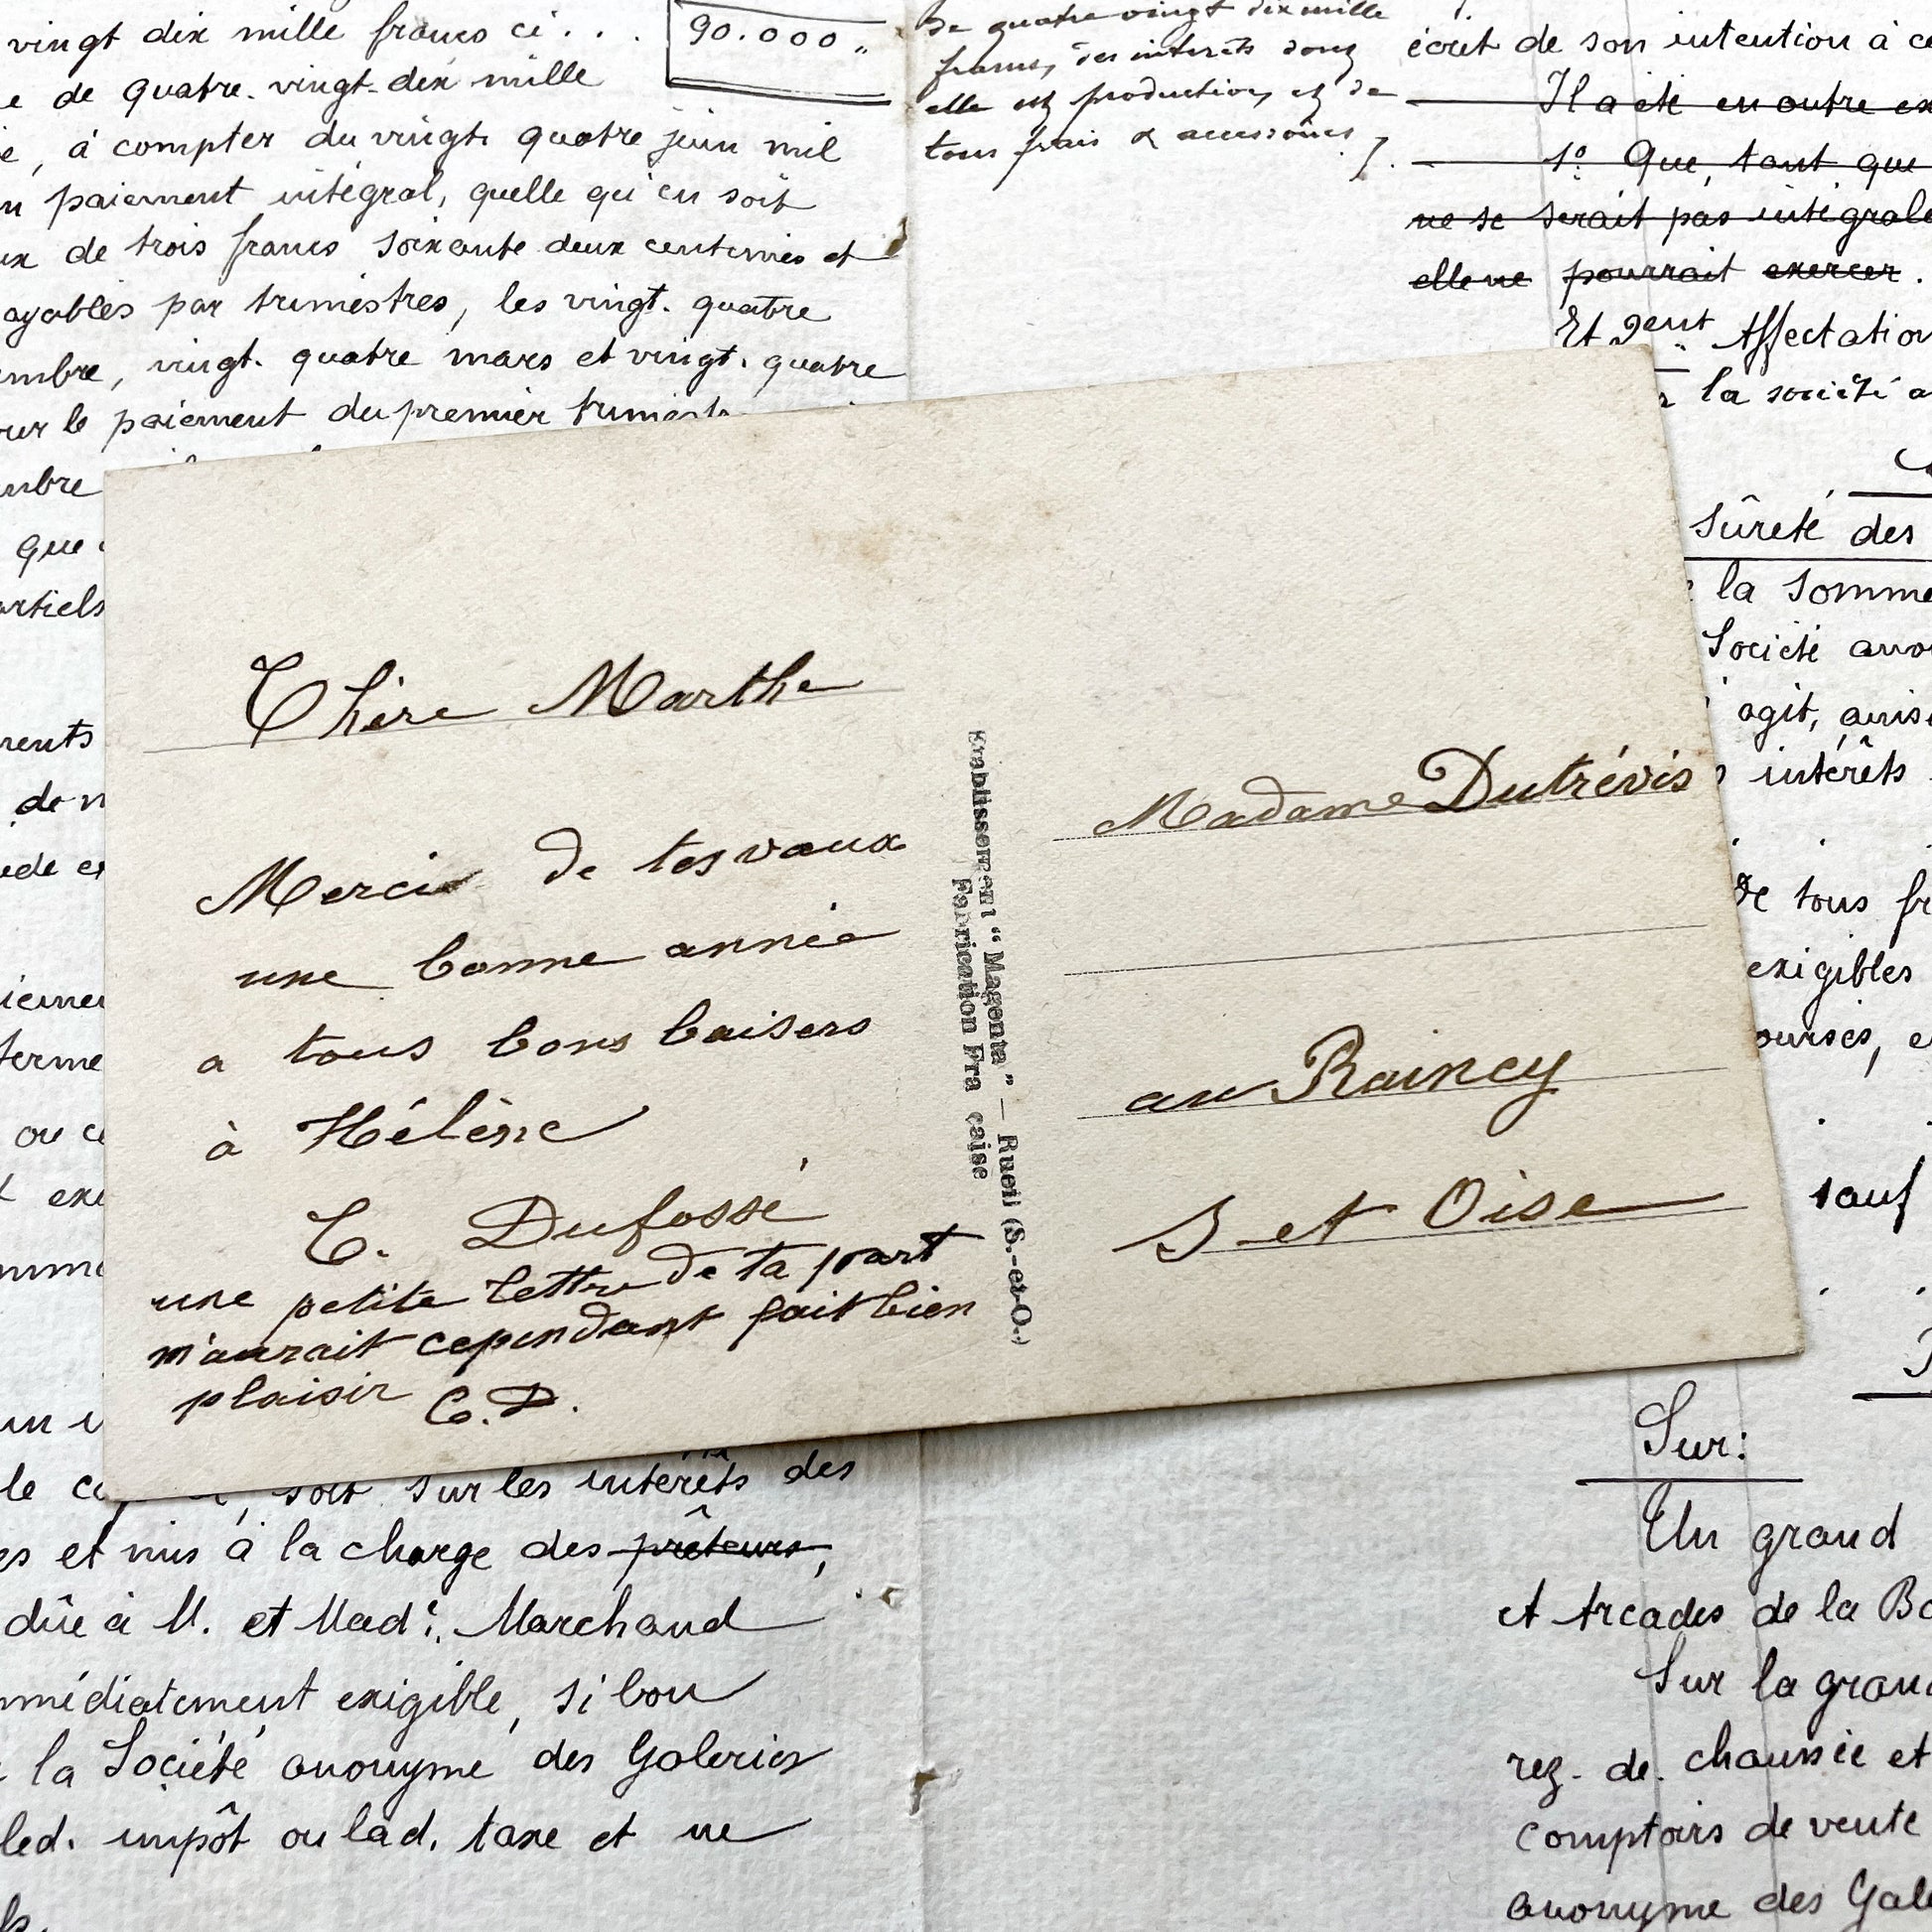 vingt dix mille francs ci . . .
90.000 "
e de quatre-vingt-dix mille
e, à compter du vingt quatre juin mil
n paiement intégral, quelle qu'en soit
ux de trois francs soixante deux centimes et
ayables par trimestres, les vingt. quatre
mbre, vingt. quatre mars et vingt. quatre
our le paiement du premier trimestr
mbre
que
artiels
rents
de n
ède e
iemen
terme
ou c
exé
mme
un
De quatre vingt dix mille
francs, des intérêts dont
elle est productive, et de
tous frais & accessoires /.
écret de son intention à ce
Il a été en outre ex
1º. Que, tant que
ne se serait pas intégrale
elle ne pourrait exercer.
Et 2ent. Affectation
la société a
Sûreté des
la somme
Société ano
agit, avise
intérêts
de tous fr
exigibles
ourses, e
sauf
Chère Marthe
Merci de tes vœux
une bonne année
a tous bons baisers
à Hélène
C. Dufossé
une petite lettre de ta part
m'aurait cependant fait bien
plaisir C.D.
Etablissement "Magenta" — Rueil (S.-et-O.)
Fabrication Fra çaise
Madame Dutrévis
au Raincy
S et Oise
le c , soit sur les intérêts des
es et mis à la charge des prêteurs,
dûe à M. et Made. Marchand
mmédiatement exigible, si bon
la Société anonyme des Galeries
led. impôt ou lad. taxe et ne
Sur:
Un grand
et Arcades de la Bo
Sur la gran
rez-de-chaussée et
comptoirs de vente
anonyme des Gal